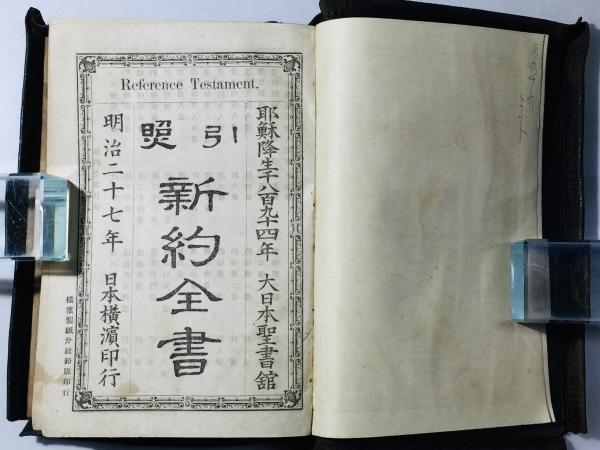 Reference Testament.
耶穌降生千八百九十四年 大日本聖書舘
引照
新約全書
明治二十七年 日本橫濵印行
橫濱製紙分社鉛版印行